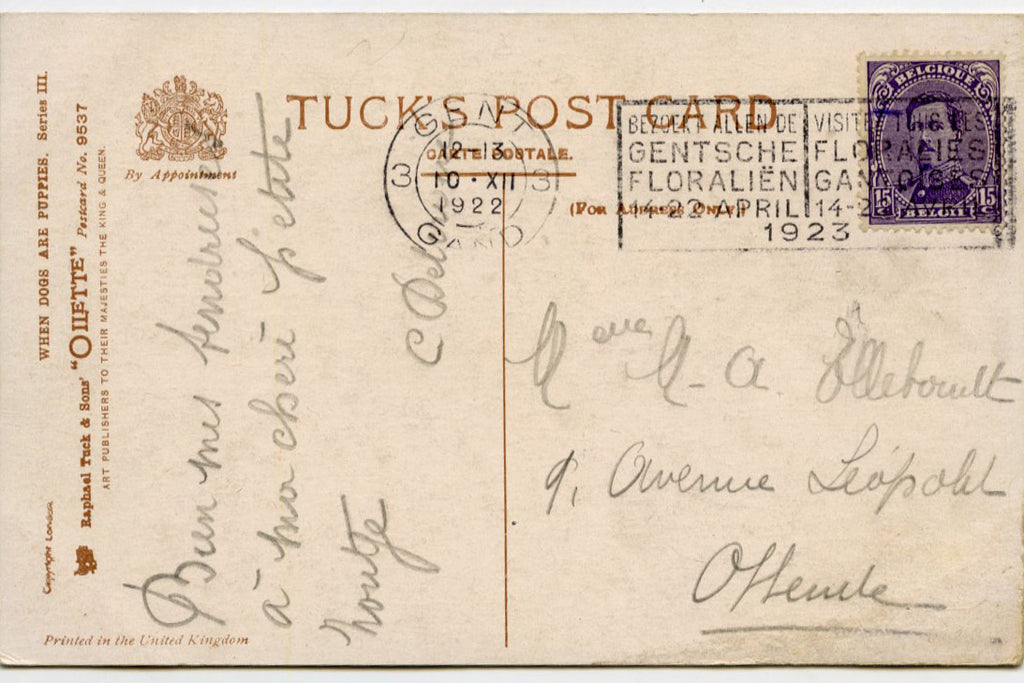 WHEN DOGS ARE PUPPIES. Series III.
Raphael Tuck & Sons' "OILETTE" Postcard No. 9537
ART PUBLISHERS TO THEIR MAJESTIES THE KING & QUEEN.
Copyright London
By Appointment
Printed in the United Kingdom
TUCK'S POST CARD
CARTE POSTALE.
(FOR ADDRESS ONLY)
GENT
12-13
3 10·XII 3
1922
GAND
BEZOEKT ALLEN DE
GENTSCHE
FLORALIËN
14-22 APRIL
VISITEZ TOUS LES
FLORALIES
GANTOISES
14-22 AVRIL
1923
BELGIQUE
15 15
BELGIË
Bien mes
à ma cheri
C
M A
9, Avenue Léopold
Ostende